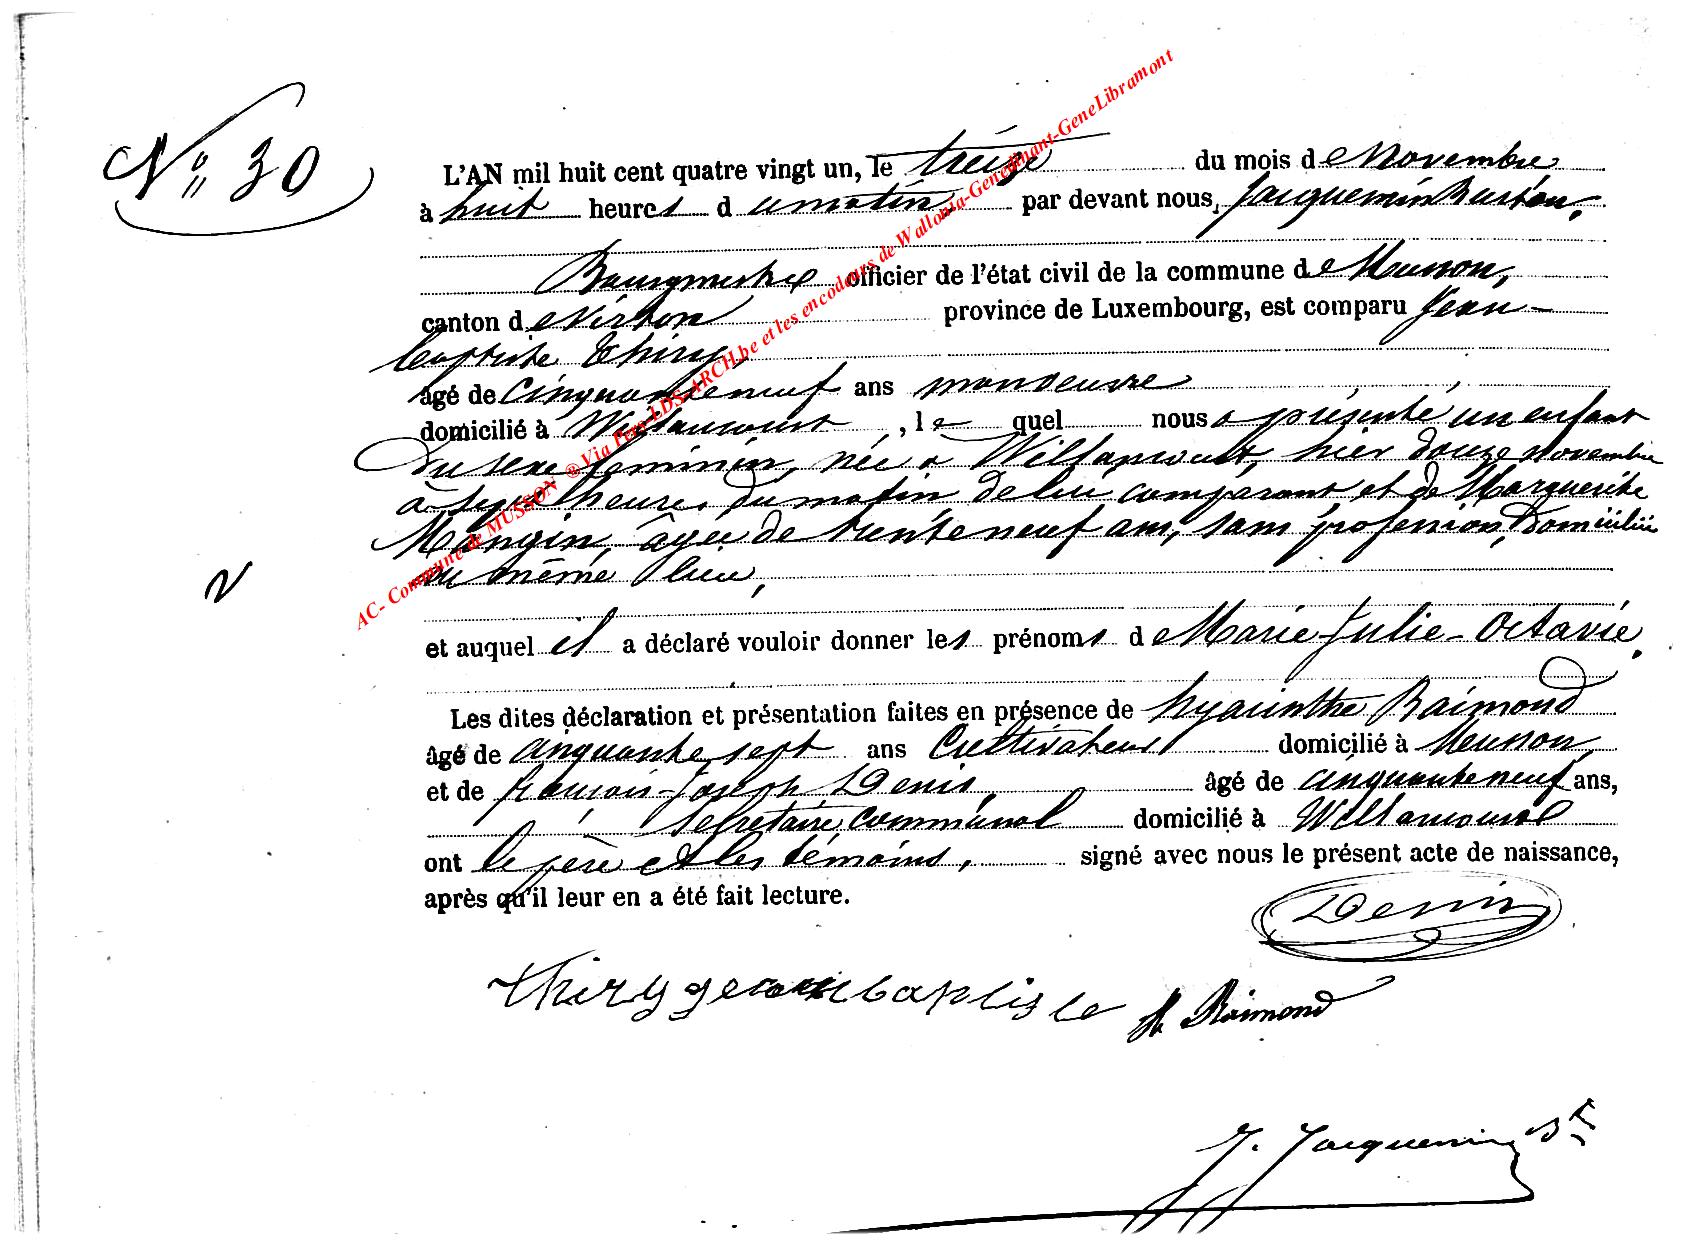 N° 30
L'AN mil huit cent quatre vingt un, le treize du mois de Novembre
à huit heures du matin par devant nous, Jacquemin Baston,
Bourgmestre officier de l'état civil de la commune de Musson,
canton de Virton province de Luxembourg, est comparu Jean-
baptiste Thiry,
âgé de cinquante neuf ans manoeuvre
domicilié à Willancourt, lequel nous a présenté un enfant
du sexe féminin, née à Willancourt, hier douze novembre
à sept heures du matin de lui comparant et de Marguerite
Mangin, âgée de trente neuf ans, sans profession, domiciliée
au même lieu,
et auquel il a déclaré vouloir donner les prénoms de Marie-Julie-Octavie.
Les dites déclaration et présentation faites en présence de hyacinthe Raimond
âgé de cinquante sept ans Cultivateur domicilié à Musson,
et de françois-Joseph Denis, âgé de cinquante neuf ans,
secrétaire communal domicilié à Willancourt
ont le père et les témoins, signé avec nous le présent acte de naissance,
après qu'il leur en a été fait lecture.
Denis
thiry jean baptiste
h Raimond
J. Jacquemin Bt
AC- Commune de MUSSON ® Via Pero LDS-ARCH.be et les encodeurs de Wallonia-Genedinant-GeneLibramont